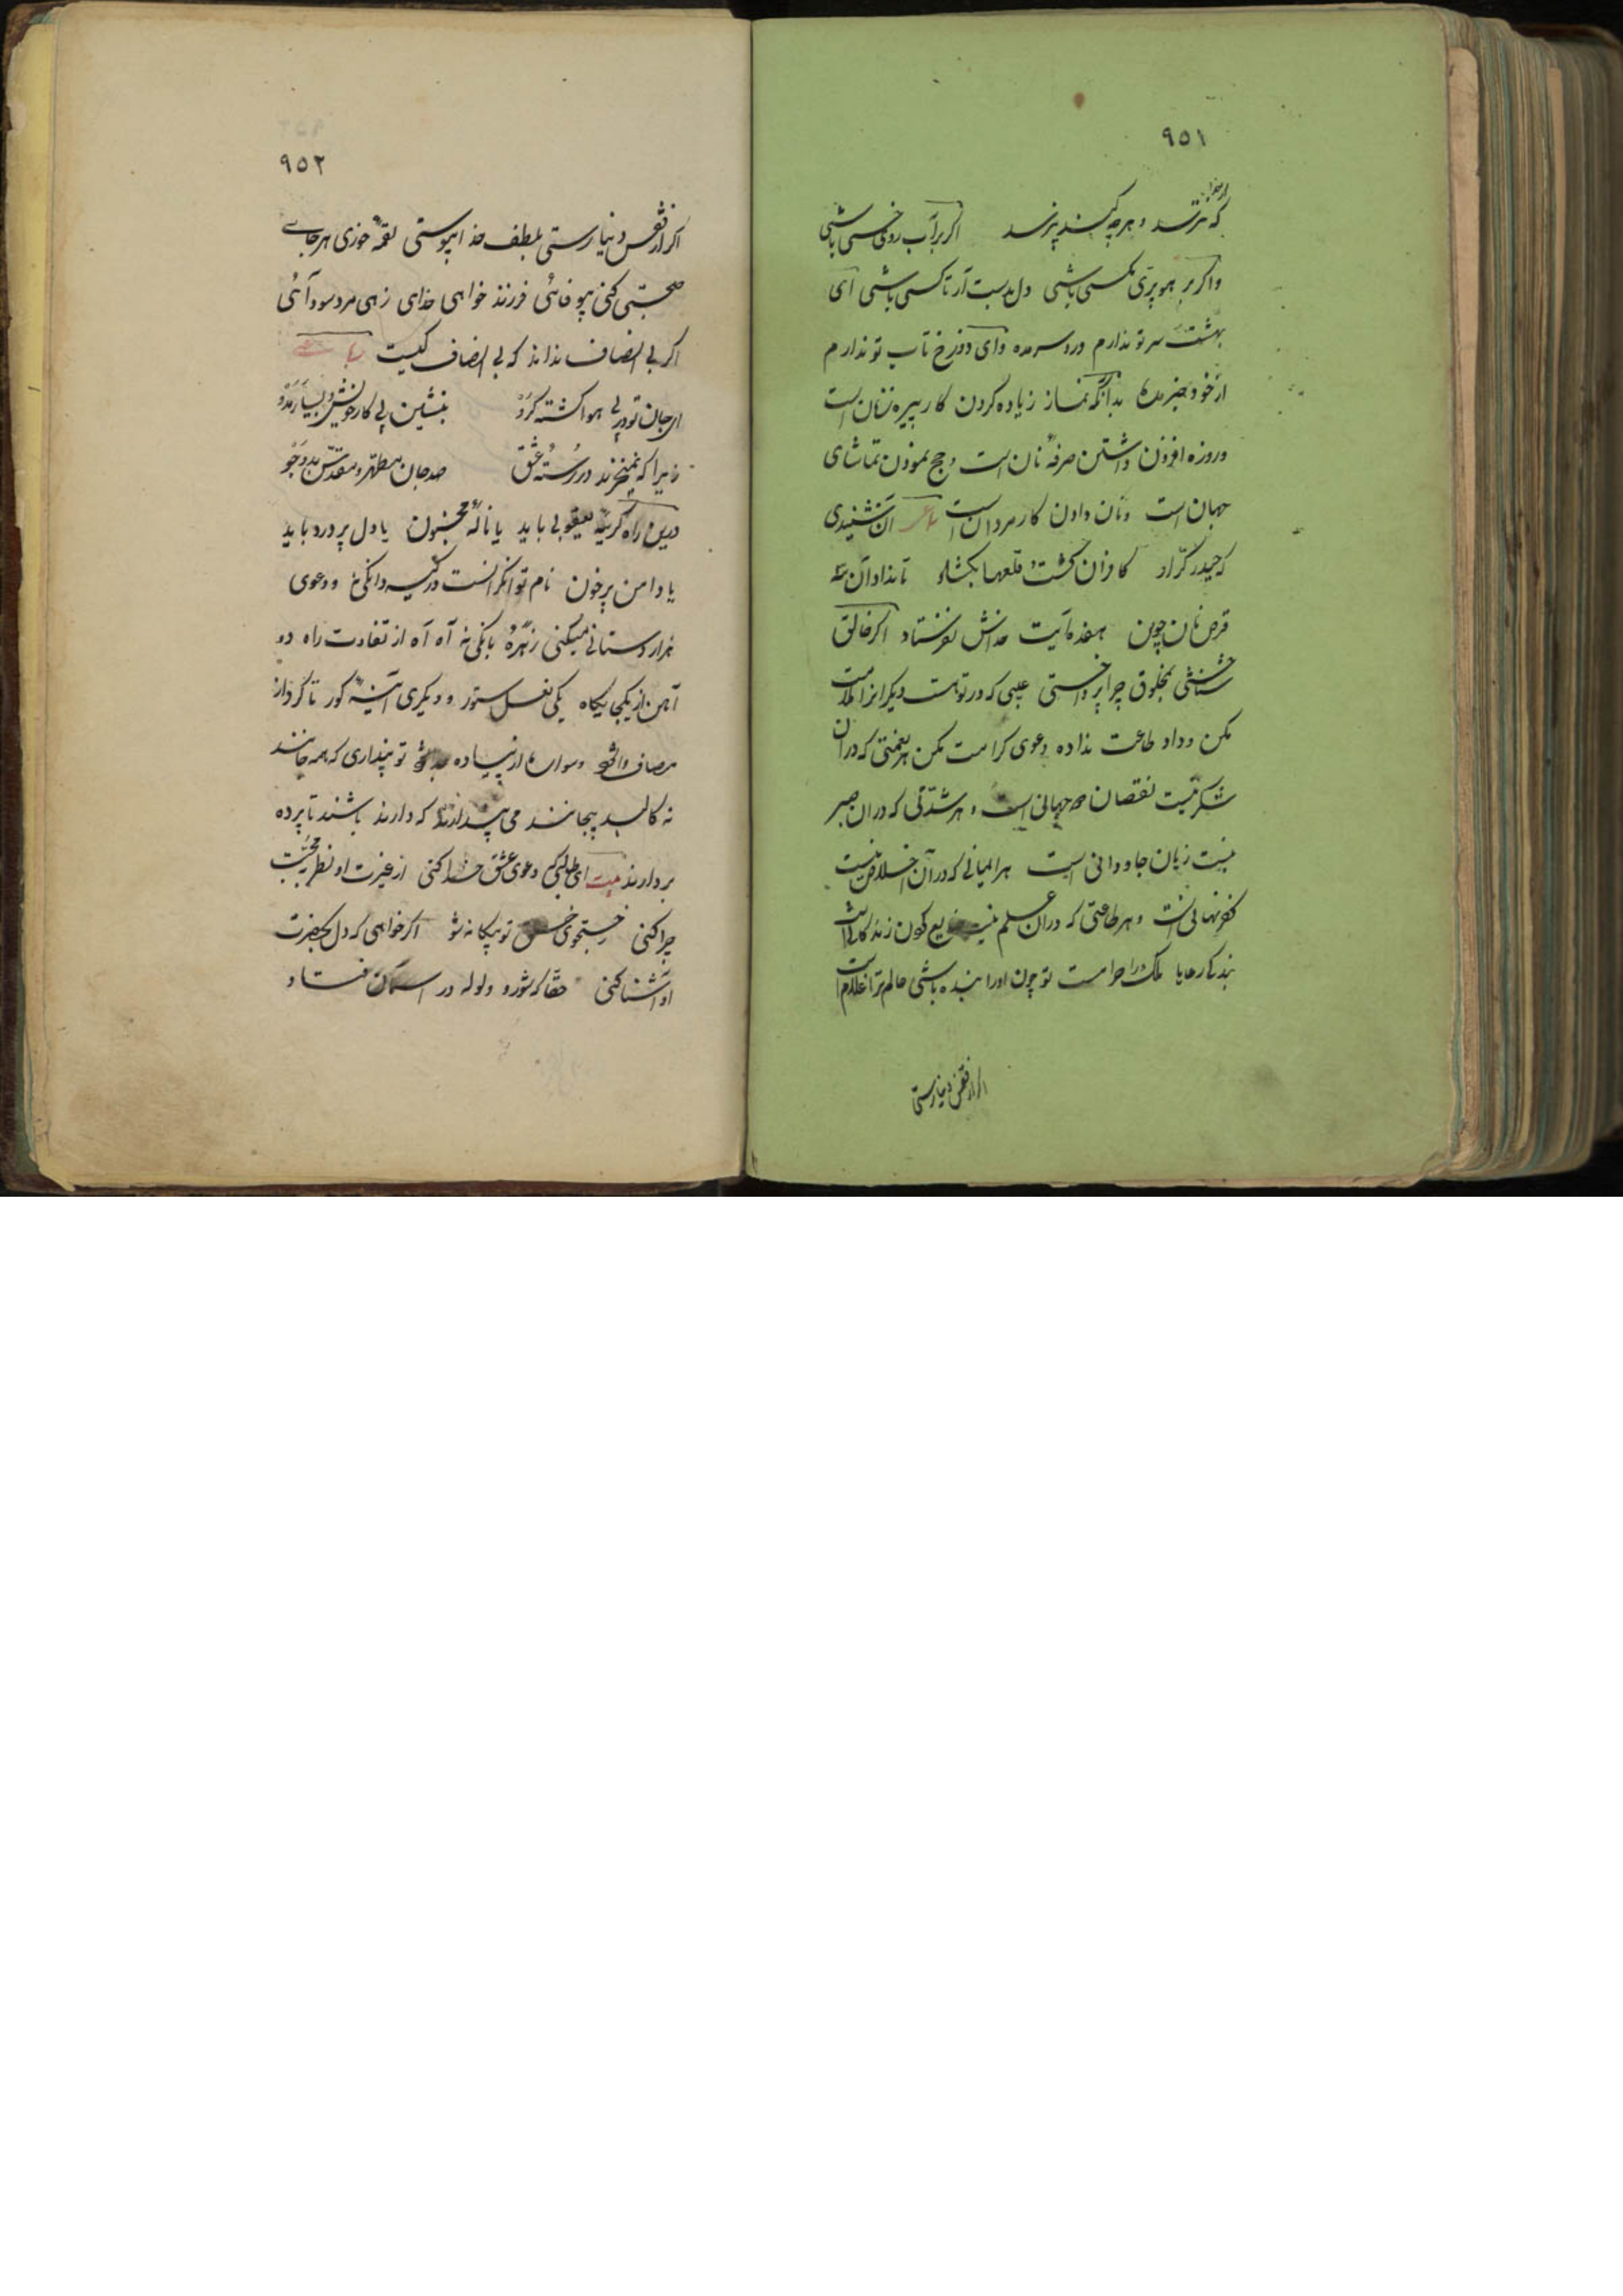 ۹۵۱
از خدا
که نترسد و هرچه کند نپرسد اکر برآب روی خسی باشی
واکر بر هوا پری مکسی باشی دل بدست آر تا کسی باشی ای
بهشت سر تو ندارم درد سر مده وای دوزخ تاب تو ندارم
از خود خبر مده بدانکه نماز زیاده کردن کار پیره زنان است
وروزه افزون داشتن صرفهٔ نان است و حج نمودن تماشای
جهان است ونان دادن کار مردان است شعر آن شنیدی
که حیدر کرّار کافران کشت و قلعها بکشاد تا نداد آن سه
قرص نان جون هفده آیت خداش نفرستاد اکر خالق
شناختی بمخلوق چرا پرداختی عیبی که در تو هست دیکرانرا ملامت
مکن وداد طاعت نداده دعوی کرامت مکن هر نعمتی که در آن
شکر نیست نقصان دو جهانی است و هر شدّتی که در آن صبر
نیست زیان جاودانی است هر ایمانی که در آن اخلاص نیست
کفر نهانی است و هر طاعتی که در آن علم نیست ضایع کردن زندکانی است
بندکی رعایا ملک را حرامست تو چون او را بنده باشی عالم ترا غلام است
اکر از نقص دنیا رستی
۹۵۲
اکر از نقص دنیا رستی بلطف خدا پیوستی لقمهٔ خوری هر جائی
صحبتی کنی بیوفائی فرزند خواهی خدای زهی مرد سودائی
اکر بی انصاف نداند که بی انصاف کیست
ای جان تو در پی هوا کشته کرو بنشین پی کار خویش و بسیار مدو
زیرا که نمیخرند در رستهٔ عشق صد جان مطهر و مقدّس بدو جو
درین راه کریهٔ یعقوبی باید یا نالهٔ مجنون یا دل پر درد باید
یا دامن پر خون نام توانکر است در کیسه دانکی نه و دعوی
هزار دستانی میکنی زهرهٔ بانکی نه آه آه از تفاوت راه دو
آهن از یکجایکاه یکی نعل ستور و دیکری آینهٔ کور تا کرد از
مصاف وا شود سواره از پیاده جدا شود تو پنداری که همه جانند
نه کالبد بیجانند می پندارند که دارند باشند تا پرده
بردارند بیت ای طالب کی دعوی عشق خدا کنی از غیرت او نظر بمحبت
چرا کنی خود تو بیکانه شو اکر خواهی که دل بحضرت
او آشنا کنی حقا که شور و ولوله در آسمان فتاد